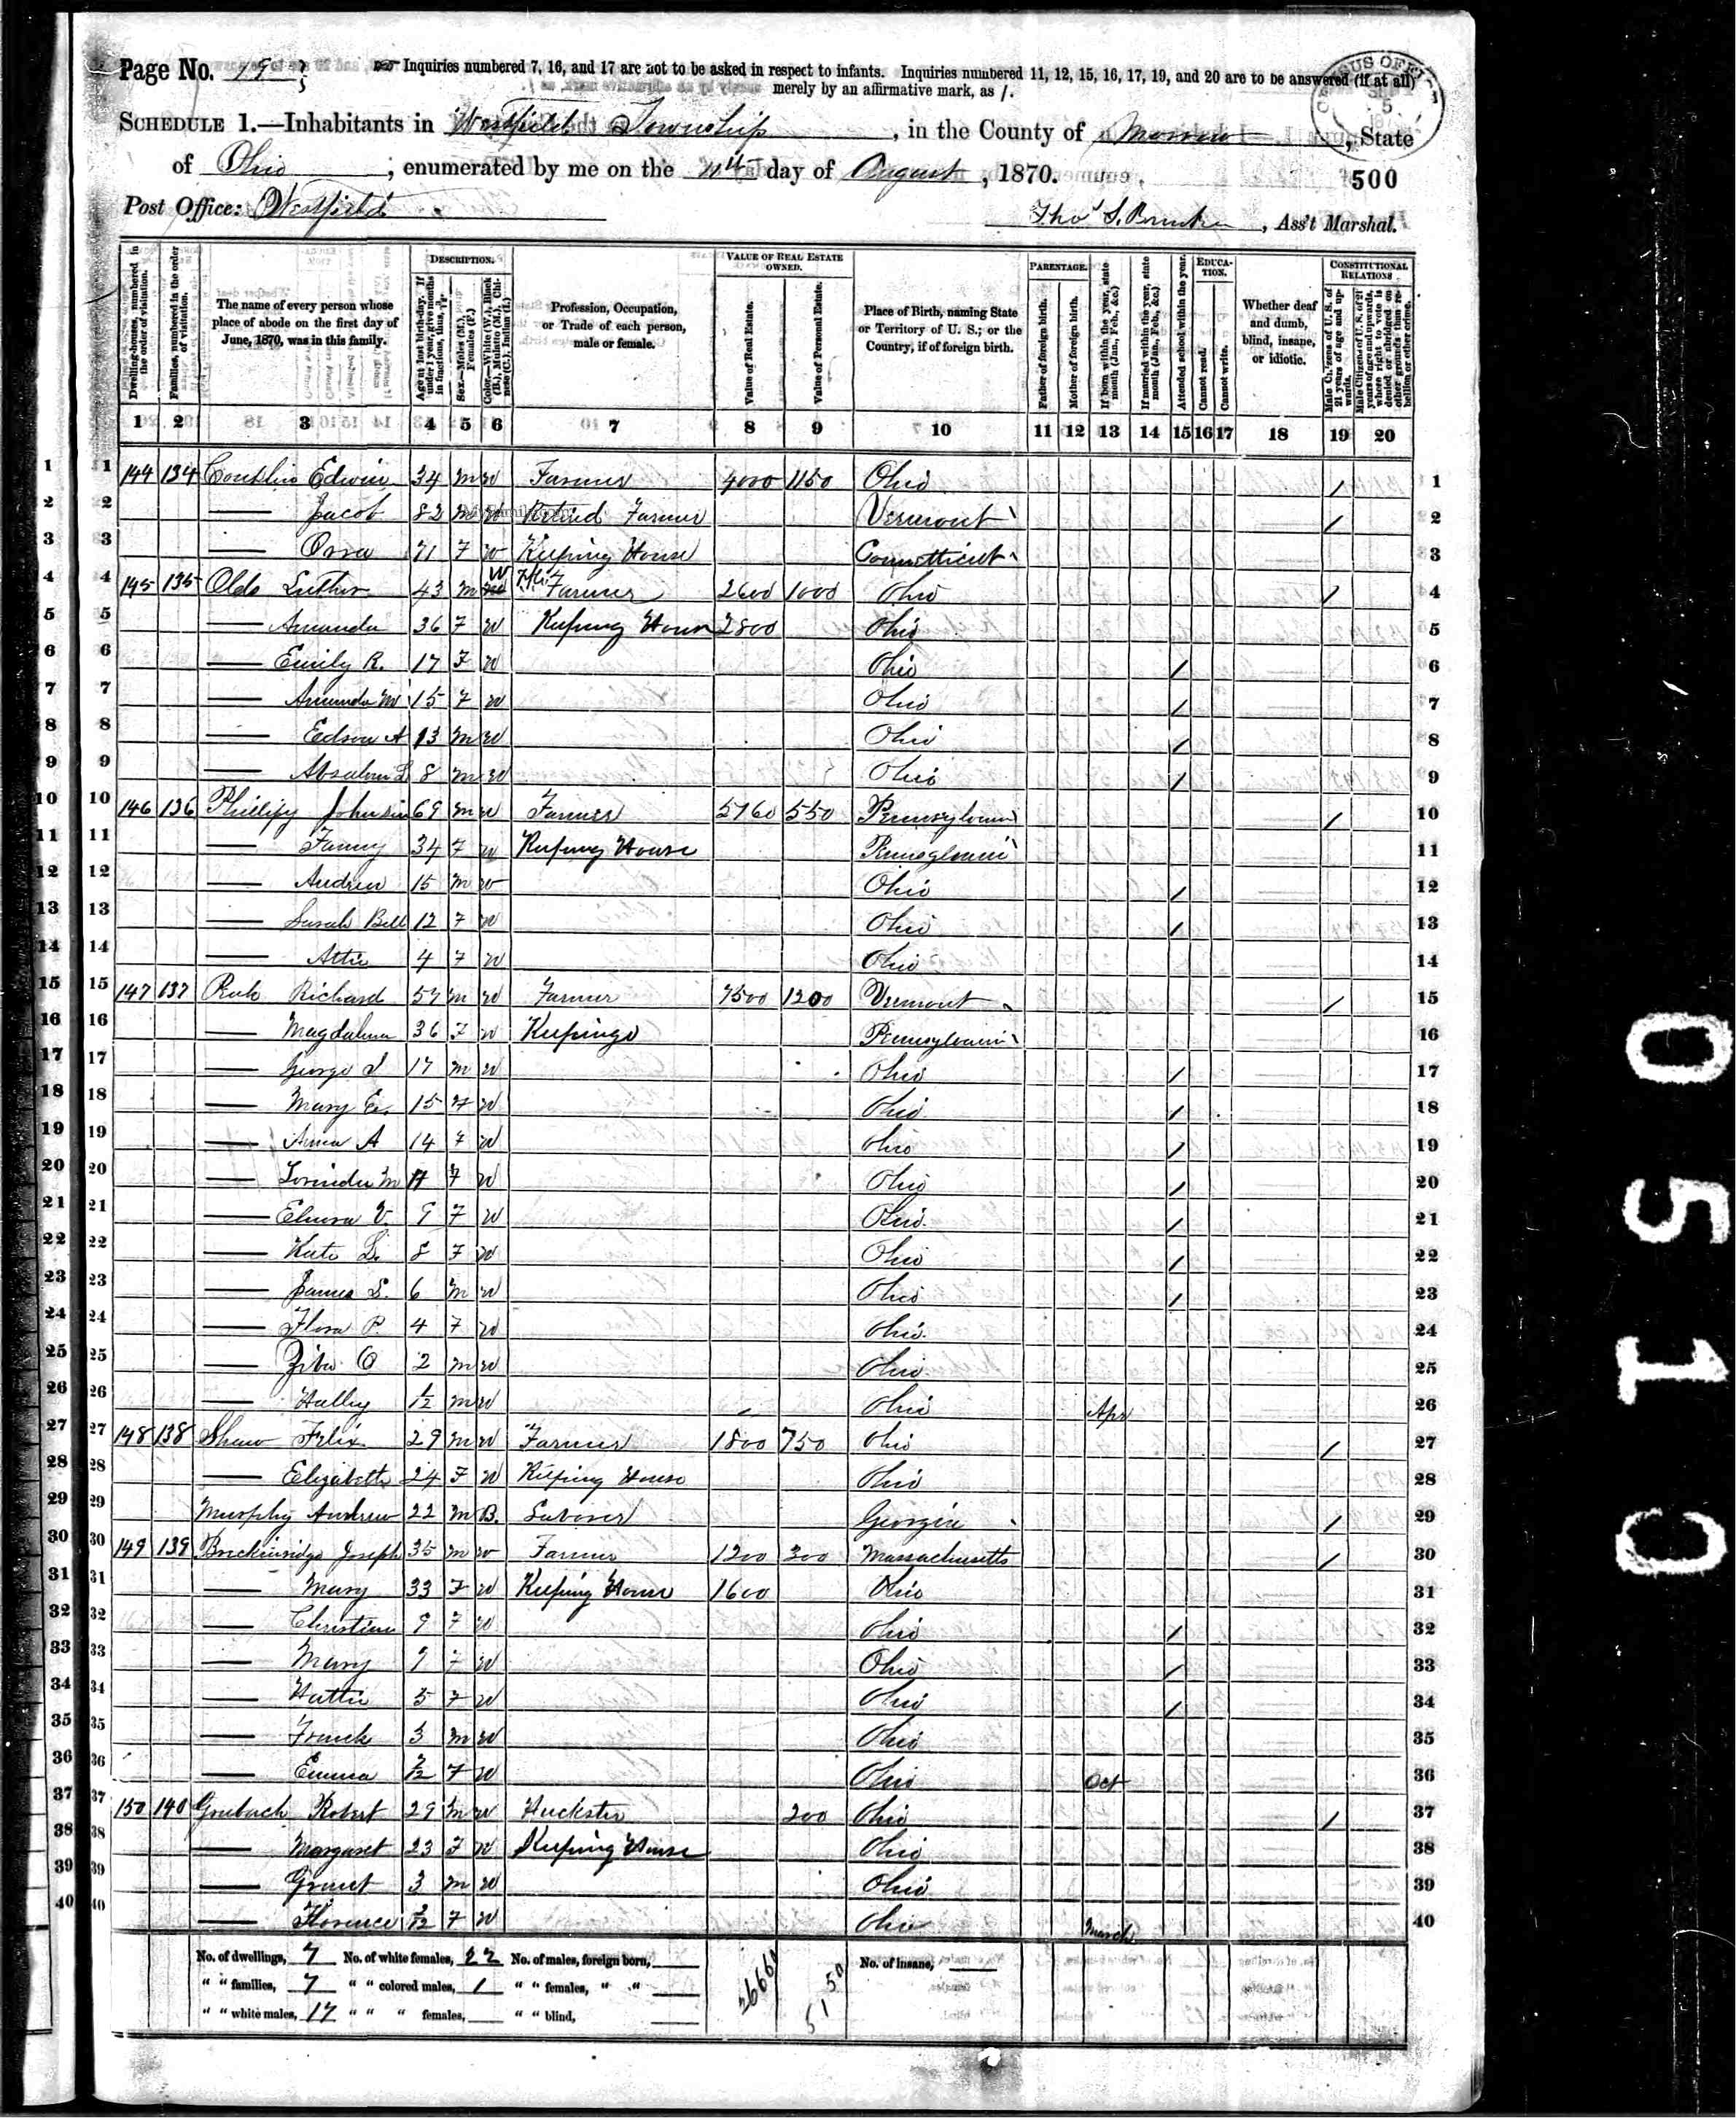 Page No. 19
Inquiries numbered 7, 16, and 17 are not to be asked in respect to infants. Inquiries numbered 11, 12, 15, 16, 17, 19, and 20 are to be answered (if at all)
merely by an affirmative mark, as /.
SCHEDULE 1.—Inhabitants in Westfield Township, in the County of Morrow, State
of Ohio; enumerated by me on the 11th day of August, 1870.
500
Post Office: Westfield
Thos S., Ass't Marshal.
Dwelling-houses, numbered in the order of visitation.
Families, numbered in the order of visitation.
The name of every person whose place of abode on the first day of June, 1870, was in this family.
DESCRIPTION.
Age at last birth-day. If under 1 year, give months in fractions, thus, 3/12
Sex.—Males (M.), Females (F.)
Color.—White (W.), Black (B.), Mulatto (M.), Chinese (C.), Indian (I.)
Profession, Occupation, or Trade of each person, male or female.
VALUE OF REAL ESTATE OWNED.
Value of Real Estate.
Value of Personal Estate.
Place of Birth, naming State or Territory of U. S.; or the Country, if of foreign birth.
PARENTAGE.
Father of foreign birth.
Mother of foreign birth.
If born within the year, state month (Jan., Feb., &c.)
If married within the year, state month (Jan., Feb., &c.)
Attended school within the year.
EDUCATION.
Cannot read.
Cannot write.
Whether deaf and dumb, blind, insane, or idiotic.
CONSTITUTIONAL RELATIONS.
Male Citizens of U. S. of 21 years of age and upwards.
Male Citizens of U. S. of 21 years of age and upwards, where right to vote is denied or abridged on other grounds than rebellion or other crime.
1 2 3 4 5 6 7 8 9 10 11 12 13 14 15 16 17 18 19 20
1 1 144 134 Conklin Edwin 34 M W Farmer 4000 1150 Ohio / 1
2 2 — Jacob 82 M W Retired Farmer Vermont / 2
3 3 — Orra 71 F W Keeping House Connetticut 3
4 4 145 135 Olds Luther 43 M W Farmer 2600 1000 Ohio / 4
5 5 — Amanda 36 F W Keeping House 2800 Ohio 5
6 6 — Emily R. 17 F W Ohio / 6
7 7 — Amanda M 15 F W Ohio / 7
8 8 — Edson A 13 M W Ohio / 8
9 9 — Absalom L 8 M W Ohio / 9
10 10 146 136 Phillipy Johnsin 69 M W Farmer 5760 550 Pennsylvani / 10
11 11 — Fanny 34 F W Keeping House Pennsylvani 11
12 12 — Andrew 15 M W Ohio / 12
13 13 — Sarah Bell 12 F W Ohio / 13
14 14 — Attie 4 F W Ohio 14
15 15 147 137 Richard 57 M W Farmer 7500 1200 Vermont / 15
16 16 — Magdalena 36 F W Keeping Pennsylvani 16
17 17 — George S 17 M W Ohio / 17
18 18 — Mary E. 15 F W Ohio / 18
19 19 — Anna A 14 F W Ohio / 19
20 20 — Lorinda M F W Ohio / 20
21 21 — Elnora V. 9 F W Ohio / 21
22 22 — Kate L. 8 F W Ohio / 22
23 23 — James S. 6 M W Ohio / 23
24 24 — Flora P. 4 F W Ohio 24
25 25 — Ziba O 2 M W Ohio 25
26 26 — M W Ohio Apr 26
27 27 148 138 Shaw Felix 29 M W Farmer 1800 750 Ohio / 27
28 28 — Elizabeth 24 F W Keeping House Ohio 28
29 29 Murphy Andrew 22 M B. Laborer Georgia / 29
30 30 149 139 Breckenridge Joseph 35 M W Farmer 1200 300 Massachusetts / 30
31 31 — Mary 33 F W Keeping House 1600 Ohio 31
32 32 — Christina 9 F W Ohio / 32
33 33 — Mary 7 F W Ohio / 33
34 34 — Hattie 5 F W Ohio / 34
35 35 — Frank 3 M W Ohio 35
36 36 — Emma F W Ohio Oct 36
37 37 150 140 Grubach Robert 29 M W Huckster 200 Ohio / 37
38 38 — Margaret 23 F W Keeping House Ohio 38
39 39 — 3 M W Ohio 39
40 40 — Florence 3/12 F W Ohio March 40
No. of dwellings, 7 No. of white females, 22 No. of males, foreign born, No. of insane,
" " families, 7 " " colored males, 1 " " females, " "
" " white males, 17 " " " females, " " blind,
26660
5150
0510